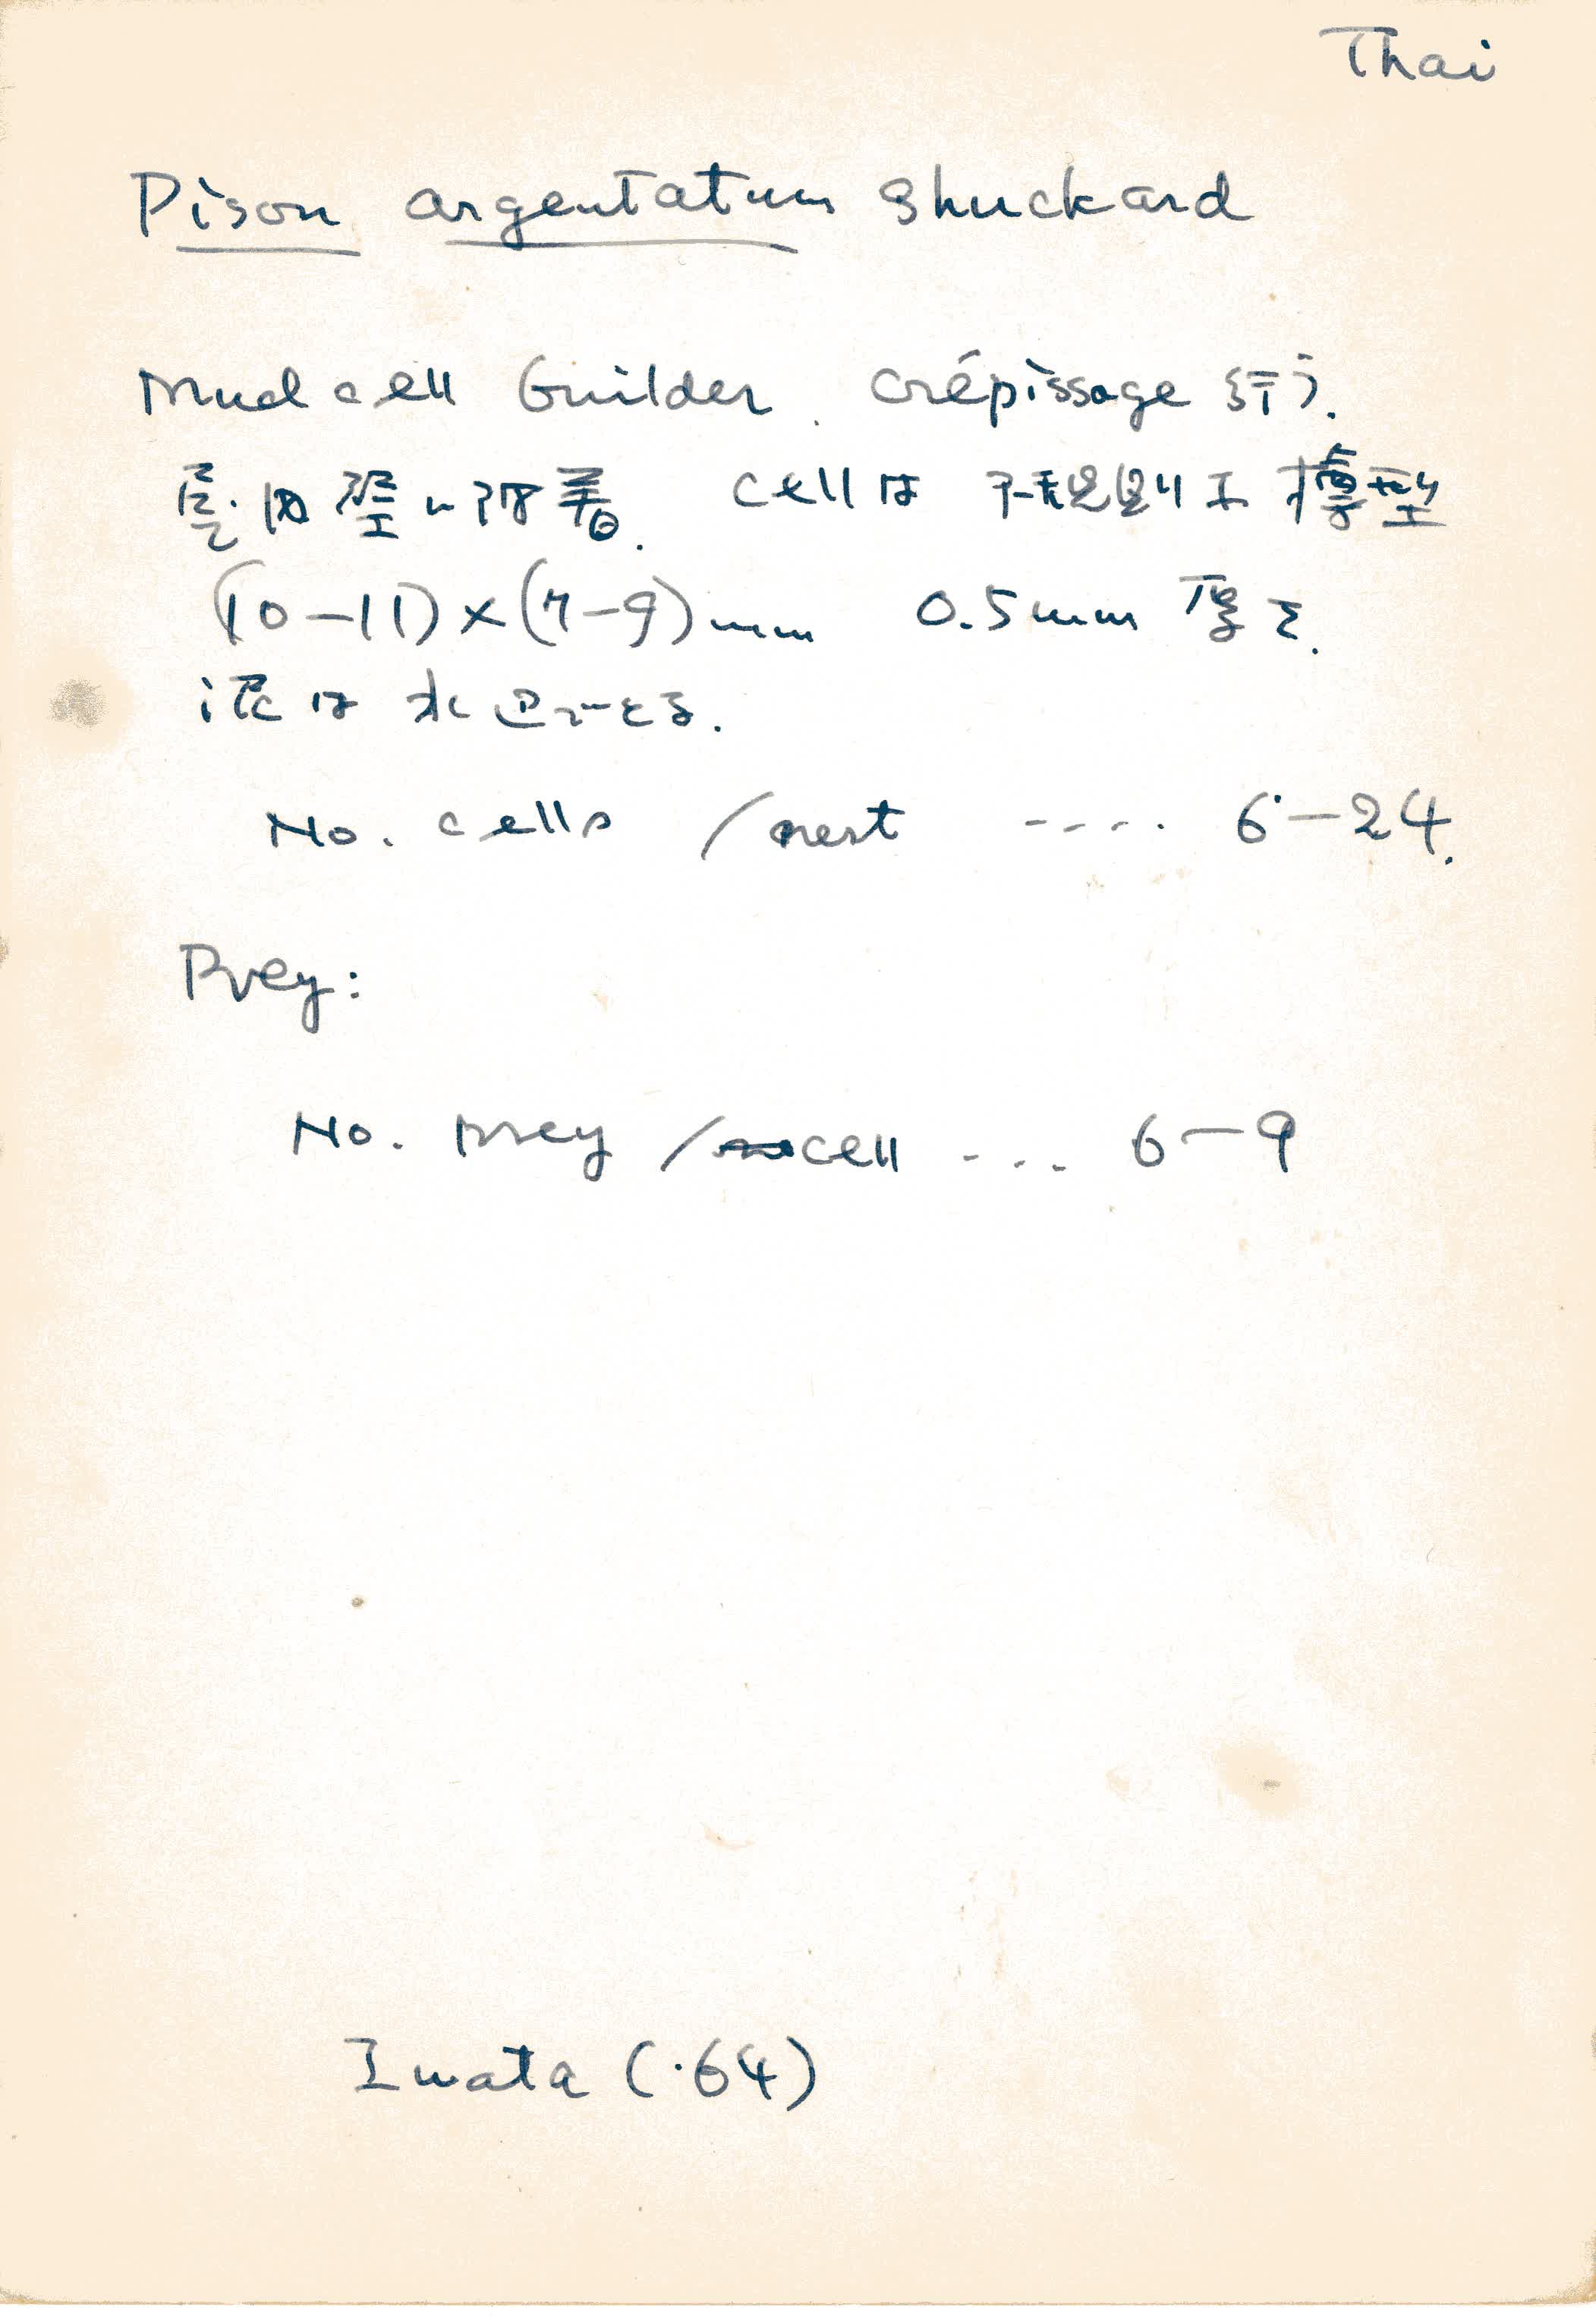 Thai
Pison argentatum Shuckard
Mud cell builder. Crépissage 行う.
屋内壁に附着. cellは
(10-11)×(7-9)mm 0.5mm 厚さ.
泥は水辺でとる.
No. cells /nest ---- 6-24.
Prey:
No. prey /cell ---- 6-9
Iwata ('64)